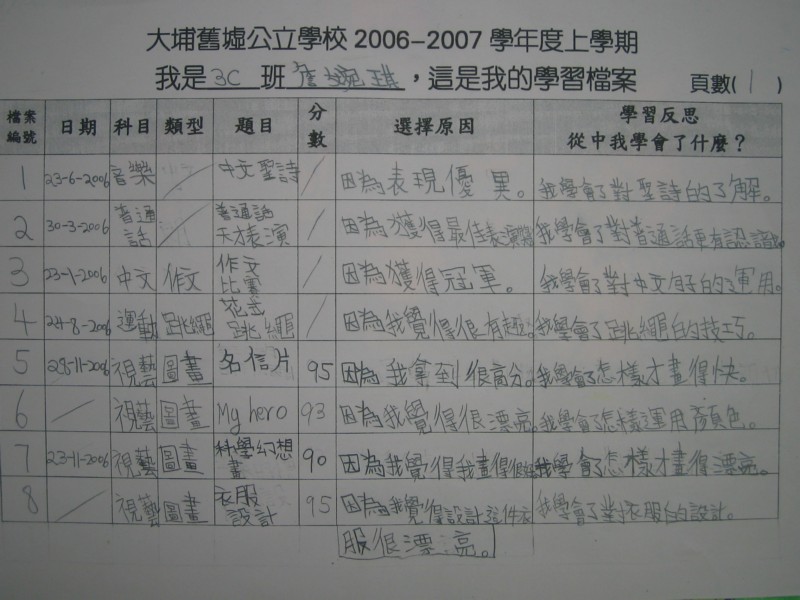 大埔舊墟公立學校 2006-2007 學年度上學期
我是 3C 班 詹婉琪,這是我的學習檔案 頁數( 1 )
檔案編號 日期 科目 類型 題目 分數 選擇原因 學習反思 從中我學會了什麼?
1 23-6-2006 音樂 / 中文聖詩 / 因為表現優異。 我學會了對聖詩的了解。
2 30-3-2006 普通話 / 普通話天才表演 / 因為獲得最佳表演 我學會了對普通話更有認識
3 23-1-2006 中文 作文 作文比賽 / 因為獲得冠軍。 我學會了對中文句子的運用。
4 24-8-2006 運動 跳繩 花式跳繩 / 因為我覺得很有趣。 我學會了跳繩的技巧。
5 28-11-2006 視藝 圖畫 名信片 95 因為我拿到很高分。 我學會了怎樣才畫得快。
6 / 視藝 圖畫 My hero 93 因為我覺得很漂亮。 我學會了怎樣運用顏色。
7 23-11-2006 視藝 圖畫 科學幻想畫 90 因為我覺得我畫得很好 我學會了怎樣才畫得漂亮。
8 / 視藝 圖畫 衣服設計 95 因為我覺得設計這件衣 我學會了對衣服的設計。
服很漂亮。